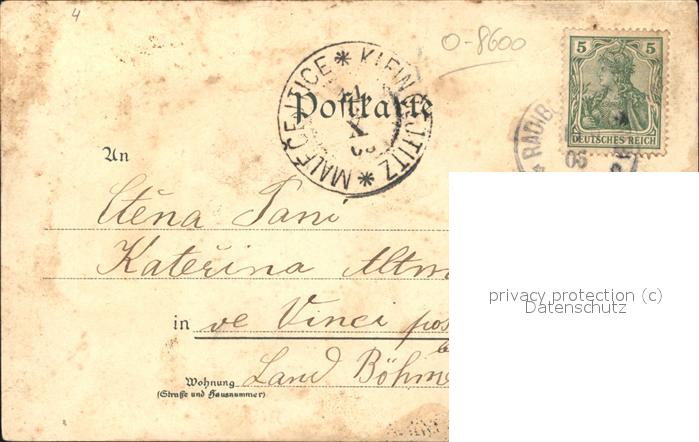 4
O-8600
5 5
DEUTSCHES REICH
KLEIN
MALE
Postkarte
RADIB
06
An
Ctěna Paní
Kateřina Altm
in ve Vinci pos
Land Böhm
Wohnung
(Straße und Hausnummer)
privacy protection (c)
Datenschutz